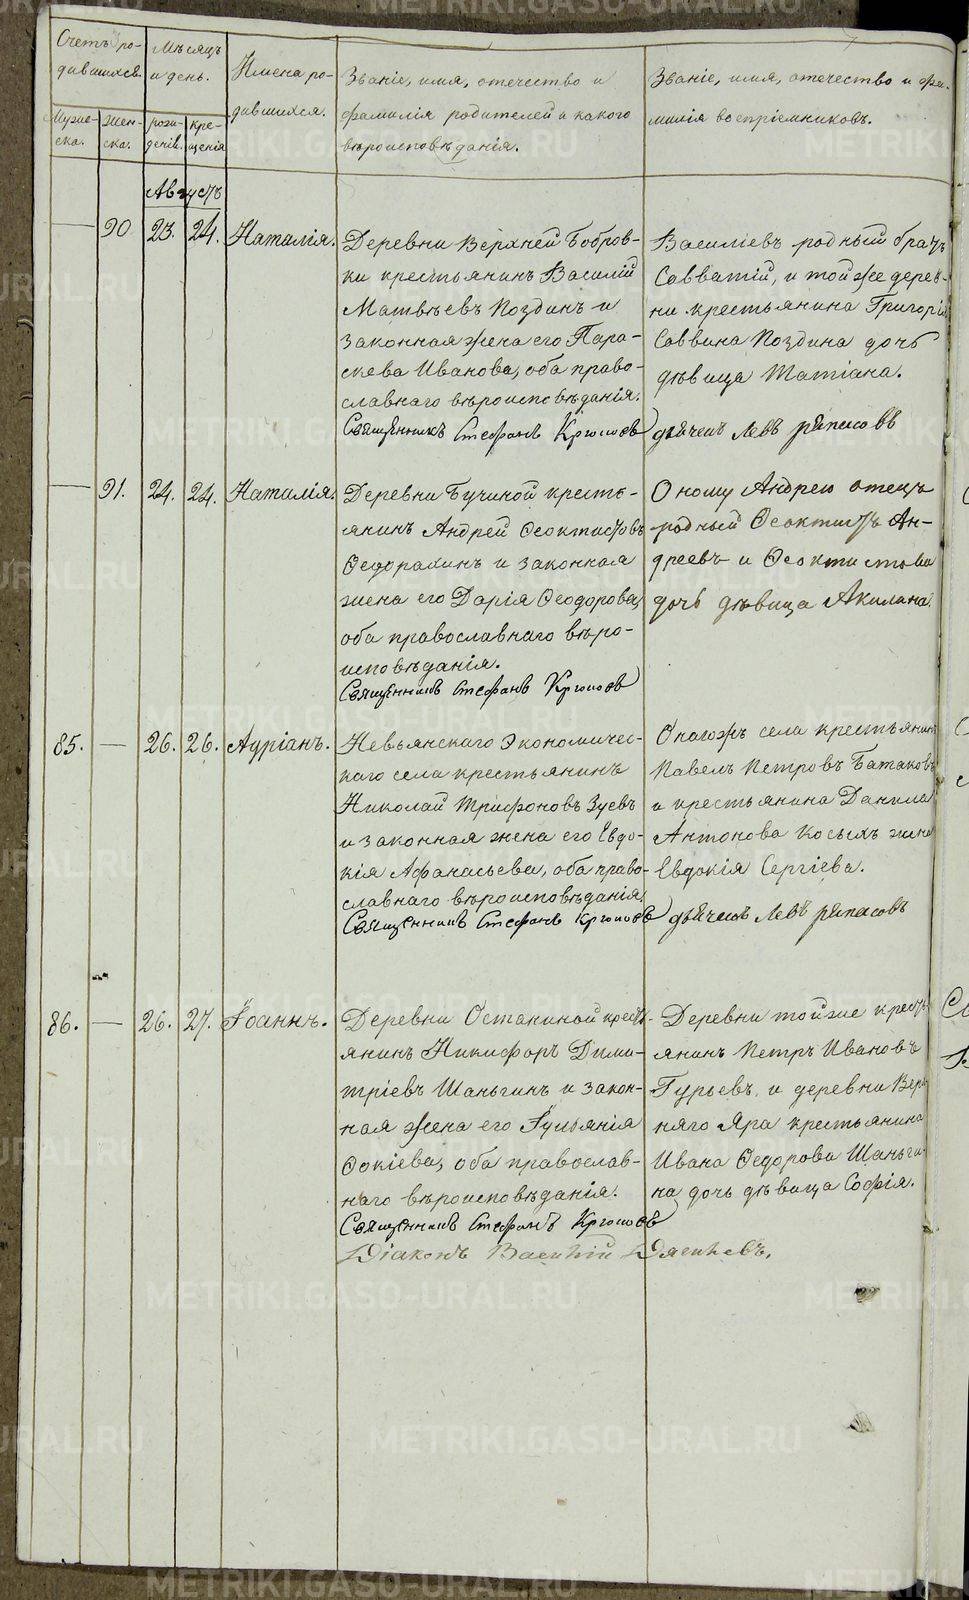 Счетъ ро-
дившихся.
Мѣсяцъ
и день.
Имена ро-
дившихся.
Званіе, имя, отечество и
фамилія родителей и какого
вѣроисповѣданія.
Званіе, имя, отечество и фа-
милія воспріемниковъ.
Муже-
ска.
Жен-
ска.
рож-
денія.
кре-
щенія
Августъ
90 23. 24. Наталія.
Деревни Верхней Бобров-
ки крестьянинъ Василій
Матвѣевъ Поздинъ и
законная жена его Пара-
скева Иванова, оба право-
славнаго вѣроисповѣданія.
Священникъ Стефанъ
Василіевъ родный братъ
Савватій, и той же дерев-
ни крестьянина Григорія
Саввина Поздина дочь
дѣвица Татіана.
дьячекъ Левъ Ряпасовъ
91. 24. 24. Наталія.
Деревни Бучиной кресть-
янинъ Андрей Ѳеоктистовъ
Ѳедорахинъ и законная
жена его Дарія Ѳеодорова,
оба православнаго вѣро-
исповѣданія.
Священникъ Стефанъ
Оному Андрею отецъ
родный Ѳеоктистъ Ан-
дреевъ и Ѳеоктистова
дочь дѣвица Акилина.
85. — 26. 26. Адріанъ.
Невьянскаго Экономичес-
каго села крестьянинъ
Николай Трифоновъ Зуевъ
и законная жена его Евдо-
кія Афанасьева, оба право-
славнаго вѣроисповѣданія.
Священникъ Стефанъ
Онагожъ села крестьянинъ
Павелъ Петровъ Батаковъ
и крестьянина Данила
Антонова Косыхъ жена
Евдокія Сергіева.
дьячекъ Левъ Ряпасовъ
86. — 26. 27. Іоаннъ.
Деревни Останиной кресть-
янинъ Никифоръ Дими-
тріевъ Шаньгинъ и закон-
ная жена его Іуліянія
Фокіева, оба православ-
наго вѣроисповѣданія.
Священникъ Стефанъ
Діаконъ Василій Дягилевъ.
Деревни тойже кресть-
янинъ Петръ Ивановъ
Гурьевъ, и деревни Верх-
няго Яра крестьянина
Ивана Ѳедорова Шаньги-
на дочь дѣвица Софія.
METRIKI.GASO-URAL.RU